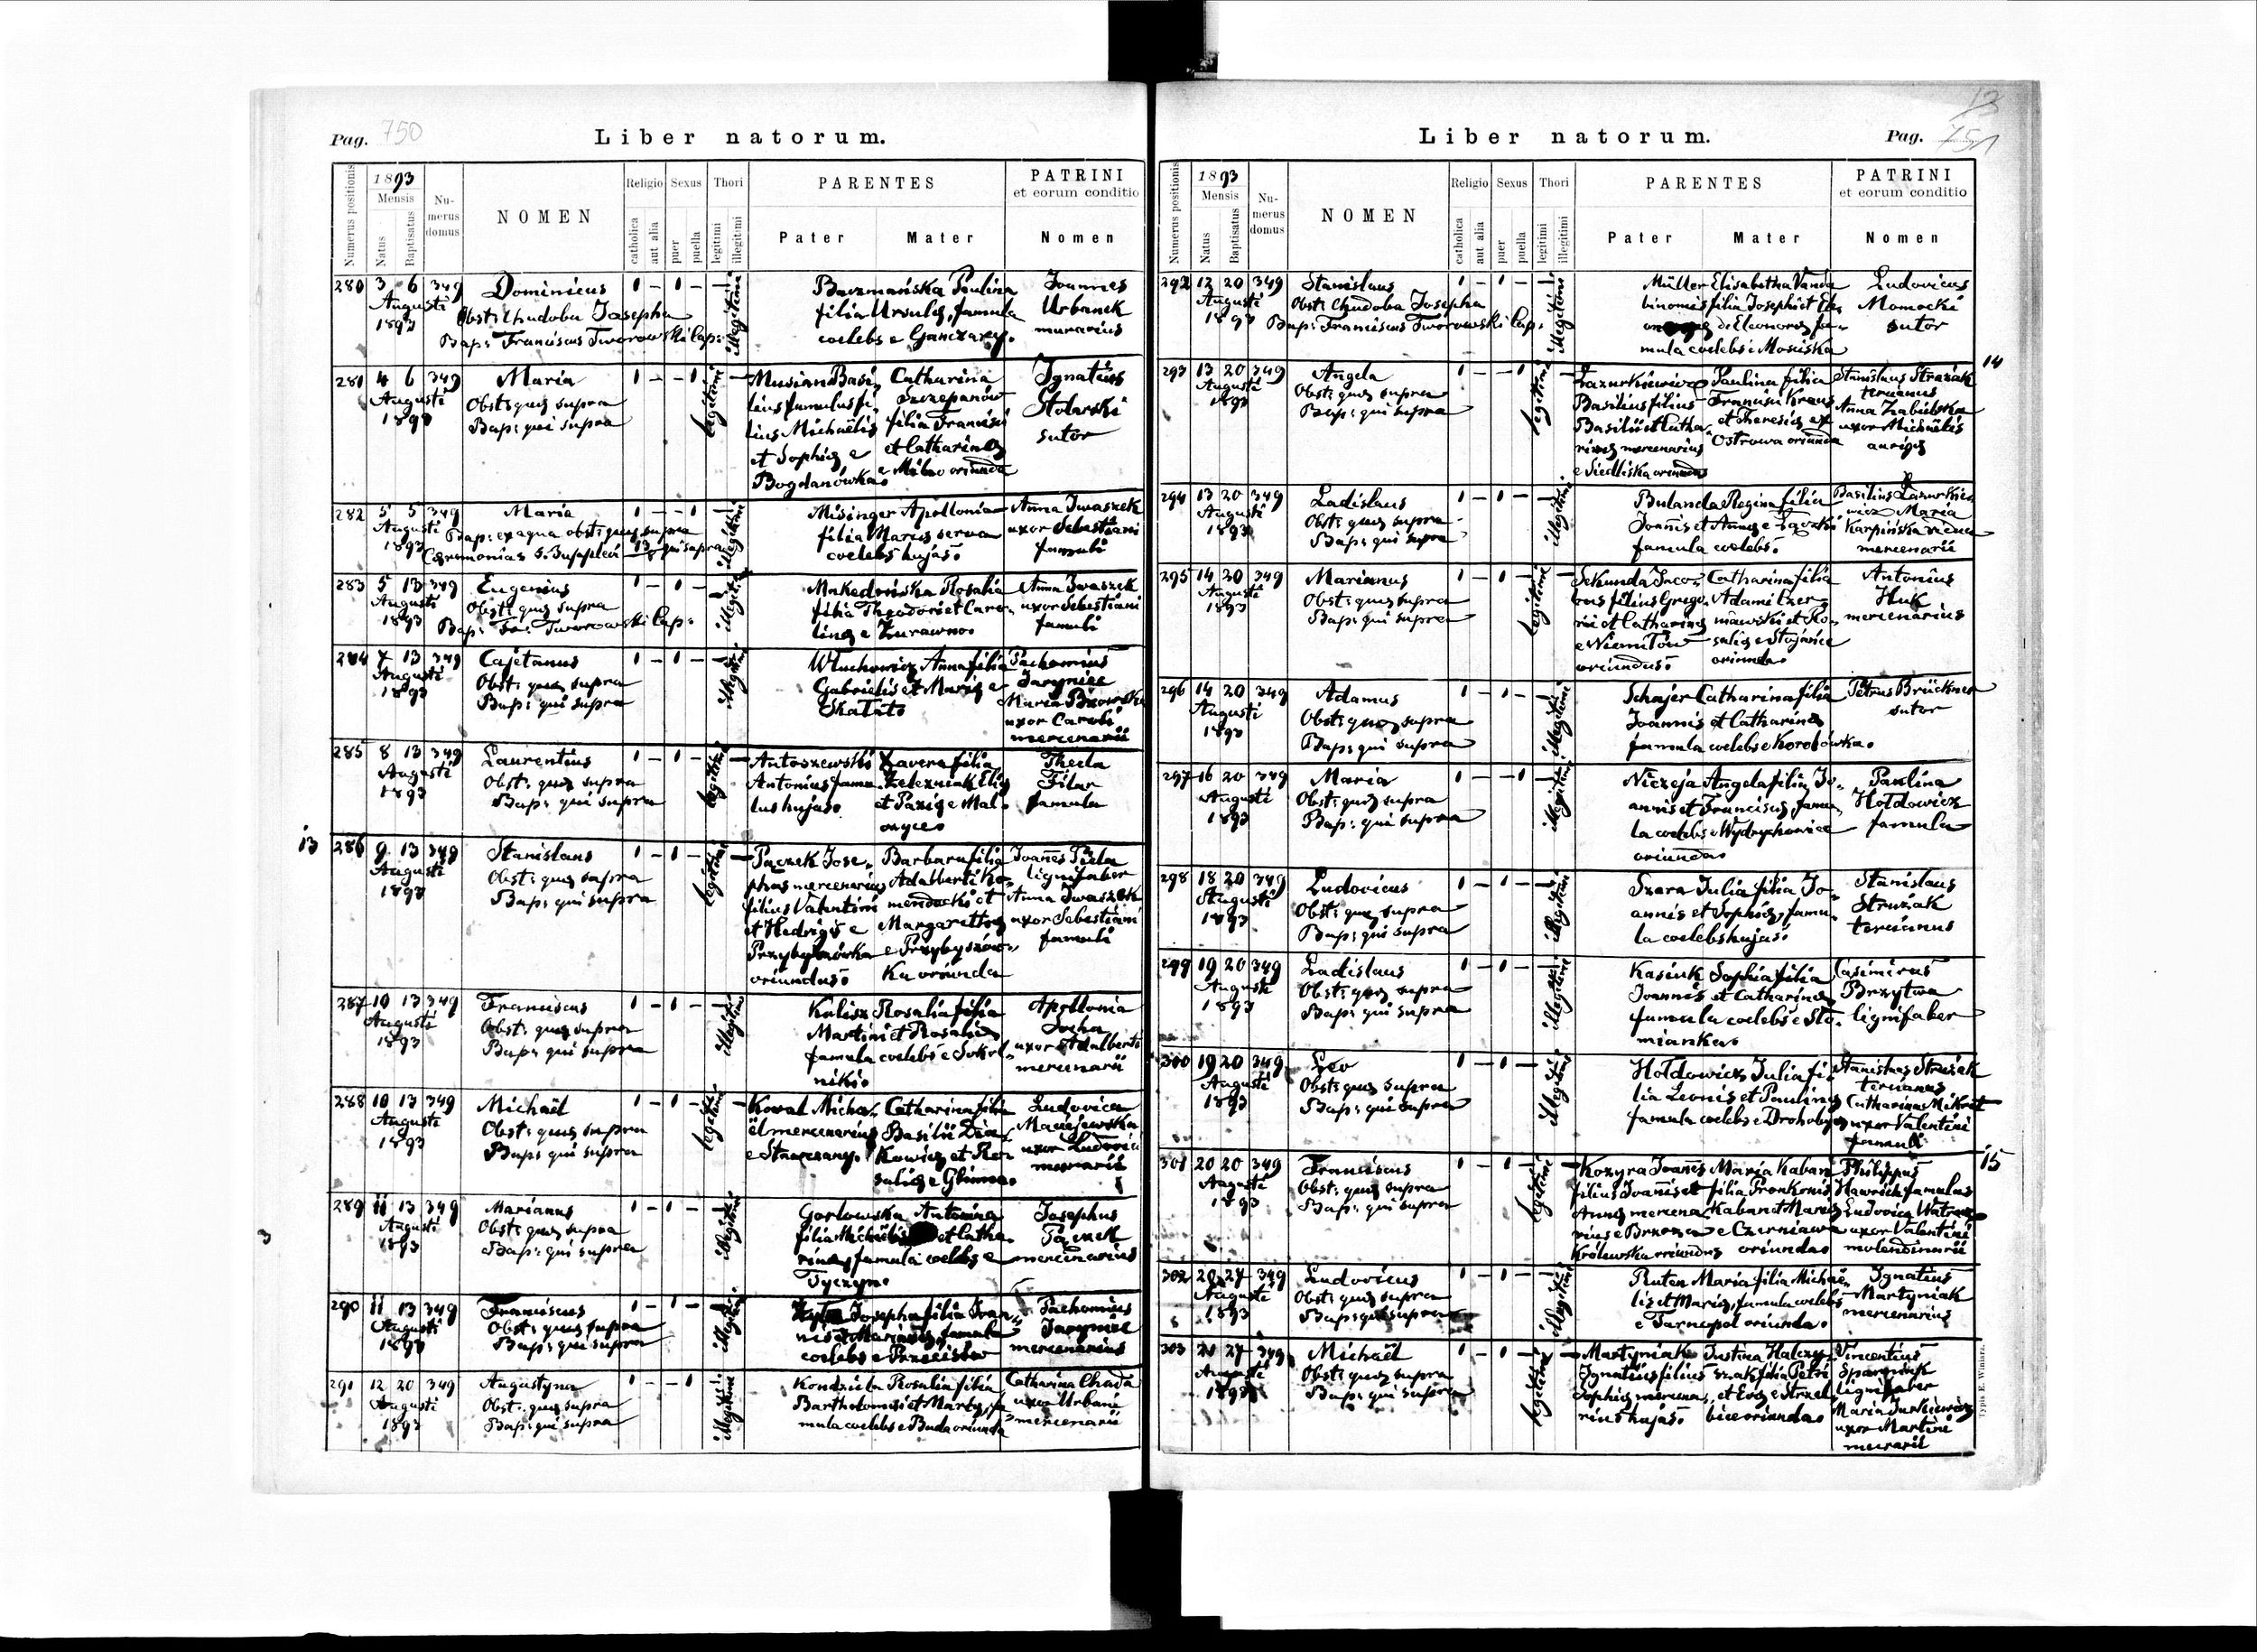 Pag. 750
Liber natorum.
Numerus positionis
1893
Mensis
Natus
Baptisatus
Nu-
merus
domus
NOMEN
Religio
catholica
aut alia
Sexus
puer
puella
Thori
legitimi
illegitimi
PARENTES
Pater
Mater
PATRINI
et eorum conditio
Nomen
280 3 6 349 Dominicus 1 - 1 - - 1
Augusti
1893
Obst: Chudoba Josepha
Bap: Franciscus Tworowski Cap:
illegitimi
Paulina
filia Ursulę, famula
coelebs e Ganczary.
Joannes
Urbanek
murarius
281 4 6 349 Maria 1 - - 1
Augusti
1893
Obst: quę supra
Bap: qui supra
legitimi
Musian Basi-
lius famulus fi-
lius Michaëlis
et Sophię e
Bogdanówka.
Catharina
Szczepanów
filia Francisci
et Catharinę
oriunda
Ignatius
Stolarski
sutor
282 5 5 349 Maria 1 - - 1
Augusti
1893
Bap: ex aqua obst: quę supra
illegitimi
Misinger Apollonia
filia Marię serva
coelebs hujas.
Anna Iwaszek
uxor Sebastiani
famuli
283 5 13 349 Eugenius 1 - 1 -
Augusti
1893
Obst: quę supra
Bap: Fr: Tworowski Cap:
illegitimi
Makedońska Rosalia
filia Theodori et Caro-
linę e Żurawno.
Anna Iwaszek
uxor Sebastiani
famuli
284 7 13 349 Cajetanus 1 - 1 -
Augusti
1893
Obst: quę supra
Bap: qui supra
Anna filia
Gabrielis et Marię e
Skałat.
Pachomius
Jarynicz
Maria
uxor Caroli
mercenarii
285 8 13 349 Laurentius 1 - 1 -
Augusti
1893
Obst: quę supra
Bap: qui supra
legitimi
Antoszewski
Antonius famu-
lus hujas.
Xavera filia
Zelezniak Elię
et Parię e Mal-
Thecla
Filar
famula
13
286 9 13 349 Stanislaus 1 - 1 -
Augusti
1893
Obst: quę supra
Bap: qui supra
legitimi
Paczek Jose-
phus mercenarius
filius Valentini
et Hedvigis e
Przybyszówka
oriundus.
Barbara filia
Adalberti Ko-
mendecki et
Margarettę
e Przybyszów-
ka oriunda
Joannes Piela
lignifaber
Anna Iwaszek
uxor Sebastiani
famuli
287 10 13 349 Franciscus 1 - 1 -
Augusti
1893
Obst: quę supra
Bap: qui supra
illegitimi
Kalisz Rosalia filia
Martini et Rosalię
famula coelebs e Sokol-
niki.
Apollonia
Socha
uxor Adalberti
mercenarii
288 10 13 349 Michaël 1 - 1 -
Augusti
1893
Obst: quę supra
Bap: qui supra
legitimi
Kowal Micha-
ël mercenarius
e Stawczany.
Catharina filia
Basilii Dia-
kowicz et Ro-
salię e Glinna.
Ludovica
Maciejewska
uxor Ludovici
murarii
289 11 13 349 Marianus 1 - 1 -
Augusti
1893
Obst: quę supra
Bap: qui supra
illegitimi
Gorlowska Antonina
filia Michaëlis et Catha-
rinę, famula coelebs e
Tyczyn.
Josephus
Paczek
mercenarius
290 11 13 349 Franciscus 1 - 1 -
Augusti
1893
Obst: quę supra
Bap: qui supra
illegitimi
Josepha filia Joan-
nis et Mariannę famula
coelebs e
Pachomius
Jarynicz
mercenarius
291 12 20 349 Augustyna 1 - - 1
Augusti
1893
Obst: quę supra
Bap: qui supra
illegitimi
Kondziela Rosalia filia
Bartholomaei et Martę, fa-
mula coelebs e Buda oriunda
Catharina Chada
uxor Urbani
mercenarii
Liber natorum.
Pag. 751
Numerus positionis
1893
Mensis
Natus
Baptisatus
Nu-
merus
domus
NOMEN
Religio
catholica
aut alia
Sexus
puer
puella
Thori
legitimi
illegitimi
PARENTES
Pater
Mater
PATRINI
et eorum conditio
Nomen
292 12 20 349 Stanislaus 1 - 1 -
Augusti
1893
Obst: Chudoba Josepha
Bap: Franciscus Tworowski Cap:
illegitimi
Müller Elisabetha Vanda
binomis filia Josephi et
Eleonorę fa-
mula coelebs e Mościska
Ludovicus
Momocki
sutor
14
293 13 20 349 Angela 1 - - 1
Augusti
1893
Obst: quę supra
Bap: qui supra
legitimi
Łazurkiewicz
Basilius filius
Basilii et Catha-
rinę mercenarius
e Siedliska oriundus
Paulina filia
Francisci Kraus
et Theresię ex
Ostrowa oriunda
Stanislaus Struzak
tercianus
Anna Zabielska
uxor Michaëlis
aurigę
294 13 20 349 Ladislaus 1 - 1 -
Augusti
1893
Obst: quę supra
Bap: qui supra
illegitimi
Bulanda Regina filia
Joannis et Annę e
famula coelebs.
Basilius Łazurkie-
wicz Maria
Karpińska vidua
mercenarii
295 14 20 349 Marianus 1 - 1 -
Augusti
1893
Obst: quę supra
Bap: qui supra
legitimi
Sekunda Jaco-
bus filius Grego-
rii et Catharinę
e Niemiłów
oriundus.
Catharina filia
Adami Czer-
niawski et Ro-
salię e Stojańce
oriunda.
Antonius
Huk
mercenarius
296 14 20 349 Adamus 1 - 1 -
Augusti
1893
Obst: quę supra
Bap: qui supra
illegitimi
Schajer Catharina filia
Joannis et Catharinę
famula coelebs e Korolówka.
Petrus Brückner
sutor
297 16 20 349 Maria 1 - - 1
Augusti
1893
Obst: quę supra
Bap: qui supra
illegitimi
Niczeja Angela filia Jo-
annis et Franciscę, famu-
la coelebs e Wydrychowice
oriunda.
Paulina
Hołdowicz
famula
298 18 20 349 Ludovicus 1 - 1 -
Augusti
1893
Obst: quę supra
Bap: qui supra
illegitimi
Szara Julia filia Jo-
annis et Sophię, famu-
la coelebs hujas.
Stanislaus
Struzak
tercianus
299 19 20 349 Ladislaus 1 - 1 -
Augusti
1893
Obst: quę supra
Bap: qui supra
illegitimi
Kasiuk Sophia filia
Joannis et Catharinę
famula coelebs e Sło-
mianka.
Casimirus
Brzytwa
lignifaber
300 19 20 349 Leo 1 - 1 -
Augusti
1893
Obst: quę supra
Bap: qui supra
illegitimi
Hołdowicz Julia fi-
lia Leonis et Paulinę
famula coelebs e Drohobycz
Stanislaus Struzak
tercianus
Catharina Mikret
uxor Valentini
famuli
15
301 20 20 349 Franciscus 1 - 1 -
Augusti
1893
Obst: quę supra
Bap: qui supra
legitimi
Kozyra Joannes
filius Joannis et
Annę mercena-
rius e Brzoza
Królewska oriundus
Maria Kaban
filia Pronkonis
Kaban et Marię
e Czerniawa
oriunda.
Philippus
Hawrich famulus
Ludovica
uxor Valentini
molendinarii
302 20 27 349 Ludovicus 1 - 1 -
Augusti
1893
Obst: quę supra
Bap: qui supra
illegitimi
Ruten Maria filia Michaë-
lis et Marię, famula coelebs
e Tarnopol oriunda.
Ignatius
Martyniak
mercenarius
303 21 27 349 Michaël 1 - 1 -
Augusti
1893
Obst: quę supra
Bap: qui supra
legitimi
Martyniak
Ignatius filius
Sophię mercena-
rius hujas.
Justina Halczy-
szak filia Petri
et Evę e Strzel-
bice oriunda.
Vincentius
lignifaber
Maria Jurkiewicz
uxor Martini
murarii